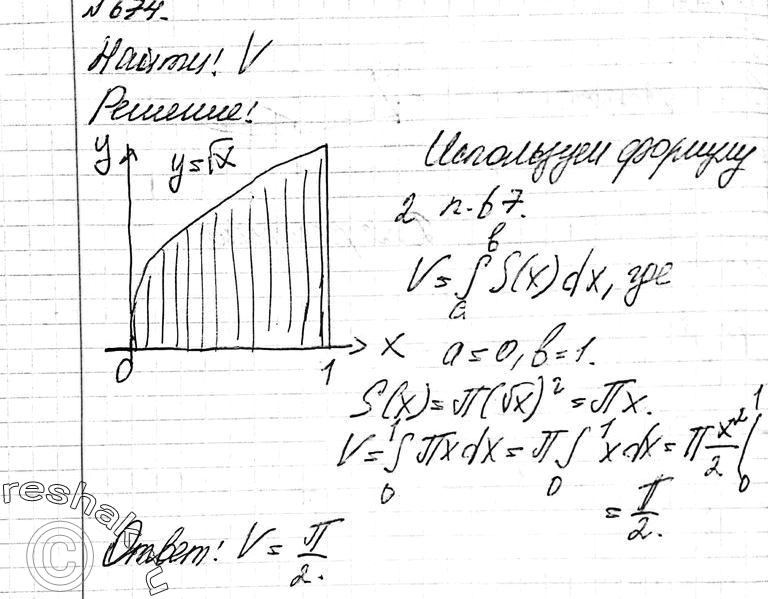 № 674.
Найти: V
Решение:
y
y=√x
0
1
x
Используем формулу
2 п. 67.
V = ∫ₐᵇ S(x) dx, где
a=0, b=1.
S(x) = π(√x)² = πx.
V = ∫₀¹ πx dx = π ∫₀¹ x dx = π x²/2 |₀¹
= π/2.
Ответ: V = π/2.
reshak.ru
©